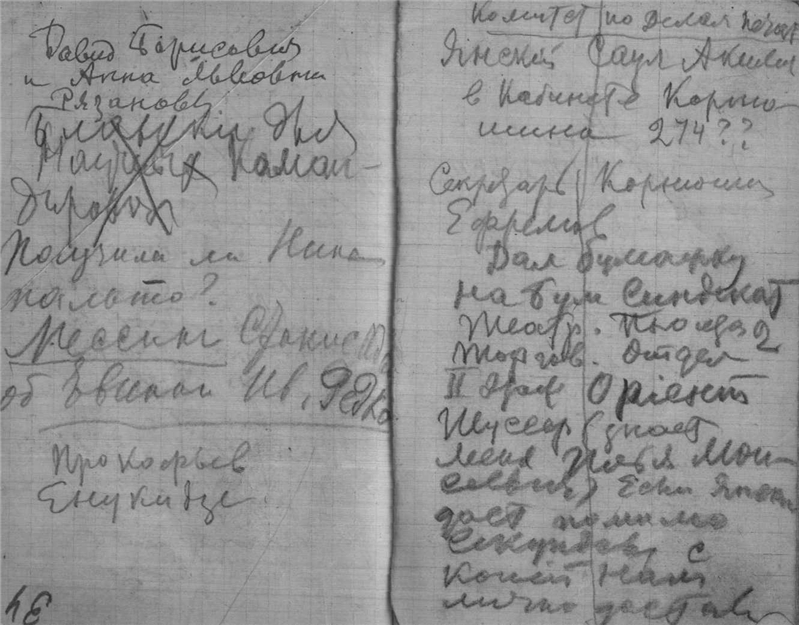 Давид Борисович
и Анна Львовна
Рязановы
Бланки для
Научных Коман-
дировок
Получила ли Нина
пальто?
Мессинг Станислав
об Евгении Ив. Редко
Прокофьев
Енукидзе
34
Комитет по делам печат
Янский Саул Аки
в Кабинете Корню
шина 274??
Секретарь Корнюшин
Ефремов
Дал бумажку
на бум Синдикат
Театр. Проезд 2
Торгов. Отдел
II этаж Оріент
Шуссер (знает
меня Илья Мои-
сеевич) Если Янский
даст
с
копией нам
лично доставл